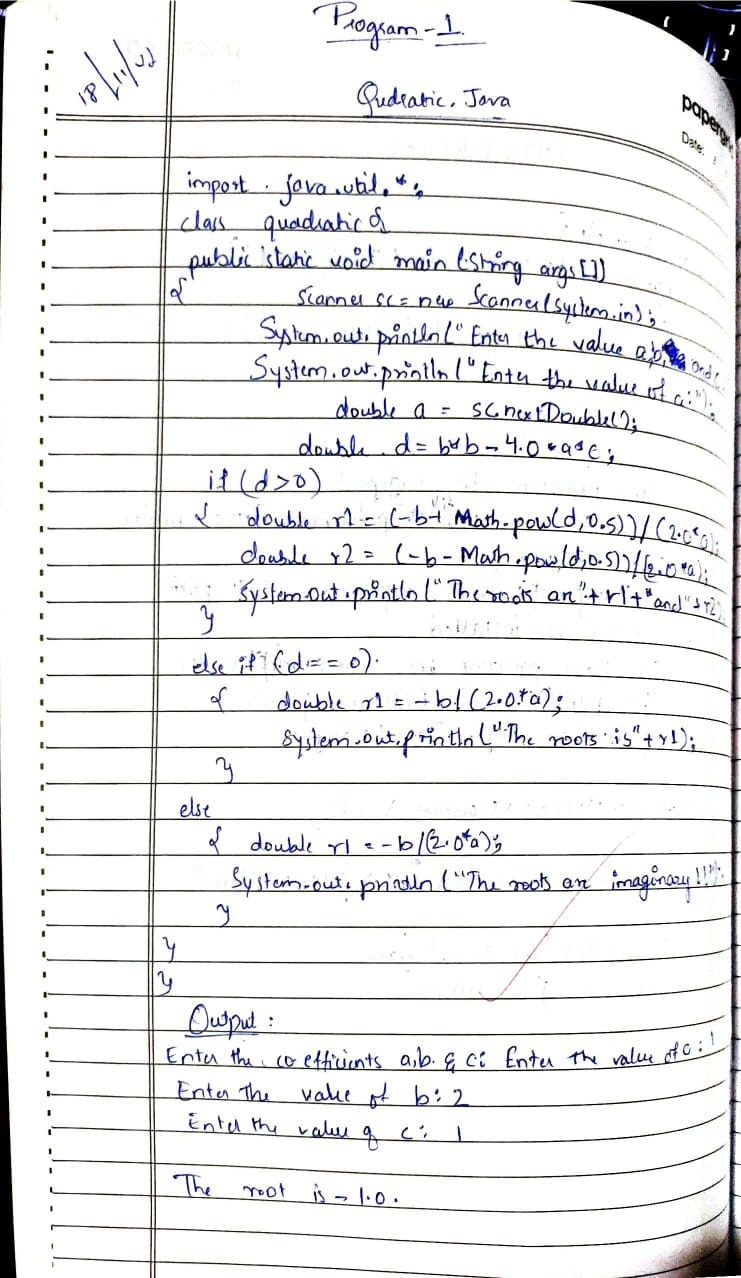 Program - 1.
18/11/22
Qudratic. Java
papergrid
Date: /
import . java.util.*;
class quadratic {
public static void main (String args[])
{ Scanner sc = new Scanner(system.in);
System.out.println(" Enter the value a,b, and c
System.out.println(" Enter the value of a:");
double a = sc.nextDouble();
double d = b*b - 4.0 * a*c;
if (d>0)
{ double r1 = (-b+ Math.pow(d,0.5))/(2.0*a);
double r2 = (-b - Math.pow(d,0.5))/(2.0*a);
System.out.println(" The roots are"+ r1+"and"+r2)
}
else if (d==0).
{ double r1 = -b/(2.0*a);
System.out.println("The roots is"+r1);
}
else
{ double r1 = -b/(2.0*a);
System.out.println("The roots are imaginary !!!");
}
}
}
Output :
Enter the co efficients a,b. & c: Enter the value of a: 1
Enter the value of b: 2
Enter the value of c: 1
The root is - 1.0.